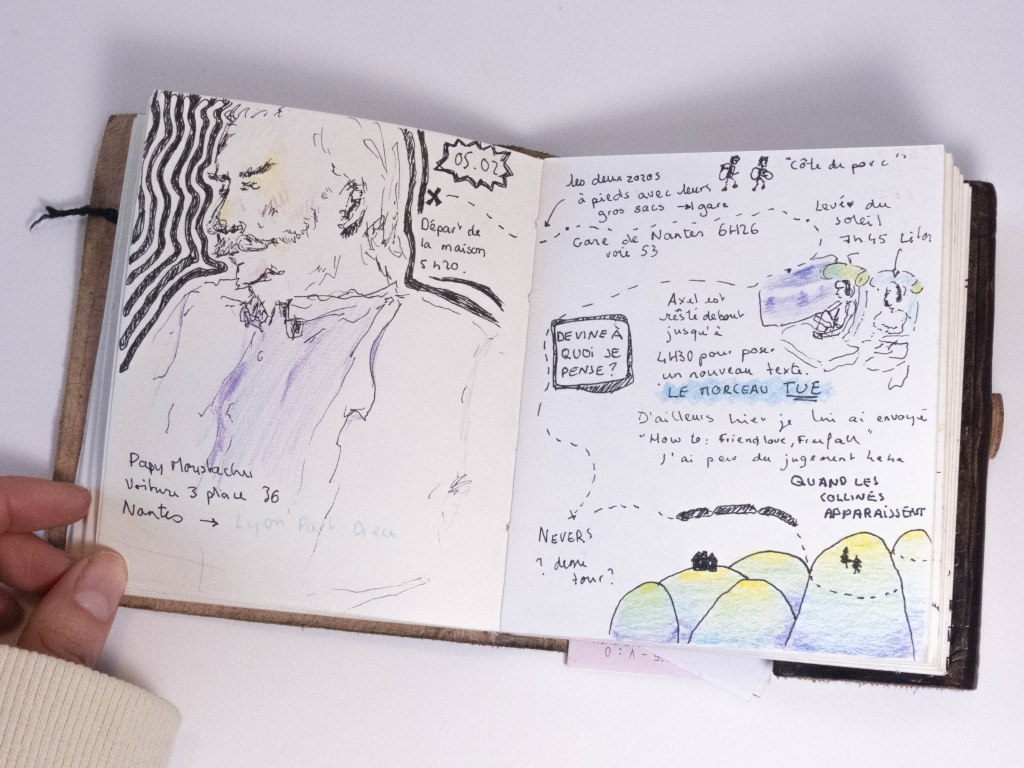 05.02
Départ de
la maison
5h20.
Papy Moustachu
Voiture 3 place 36
Nantes → Lyon Part-Dieu
les deux zozos
à pieds avec leurs
gros sacs → gare
"Côte de porc"
Gare de Nantes 6H26
voie 53
Lever du
soleil
7h45
Axel est
résté debout
jusqu'à
4H30 pour poser
un nouveau texte.
LE MORCEAU TUE
DEVINE À
QUOI JE
PENSE?
D'ailleurs hier je lui ai envoyé
"How to: Friendlove, Freefall"
J'ai peur du jugement haha
QUAND LES
COLLINES
APPARAISSENT
NEVERS
? demi
tour?